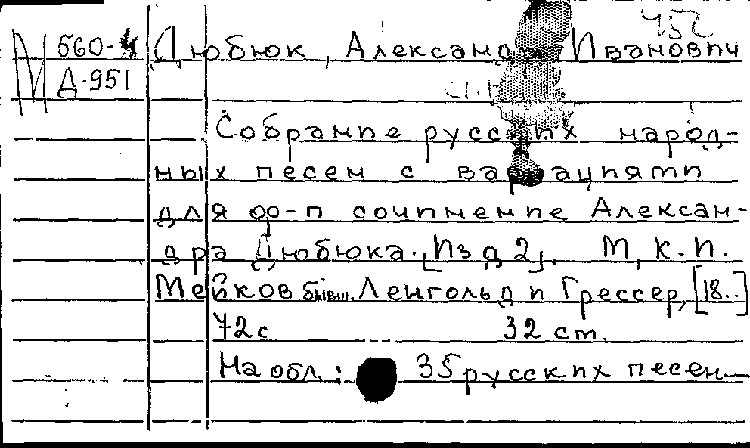 452
М 560-4 Дюбюк, Александр Иванович
Д-951
Собрание русских народ-
ных песен с вариациями
для фо-п сочинение Алексан-
дра Дюбюка. [Изд 2]. М, К. И.
Мейков бывш. Ленгольд и Грессер, [18..]
72 с 32 ст.
На обл.: 35 русских песен